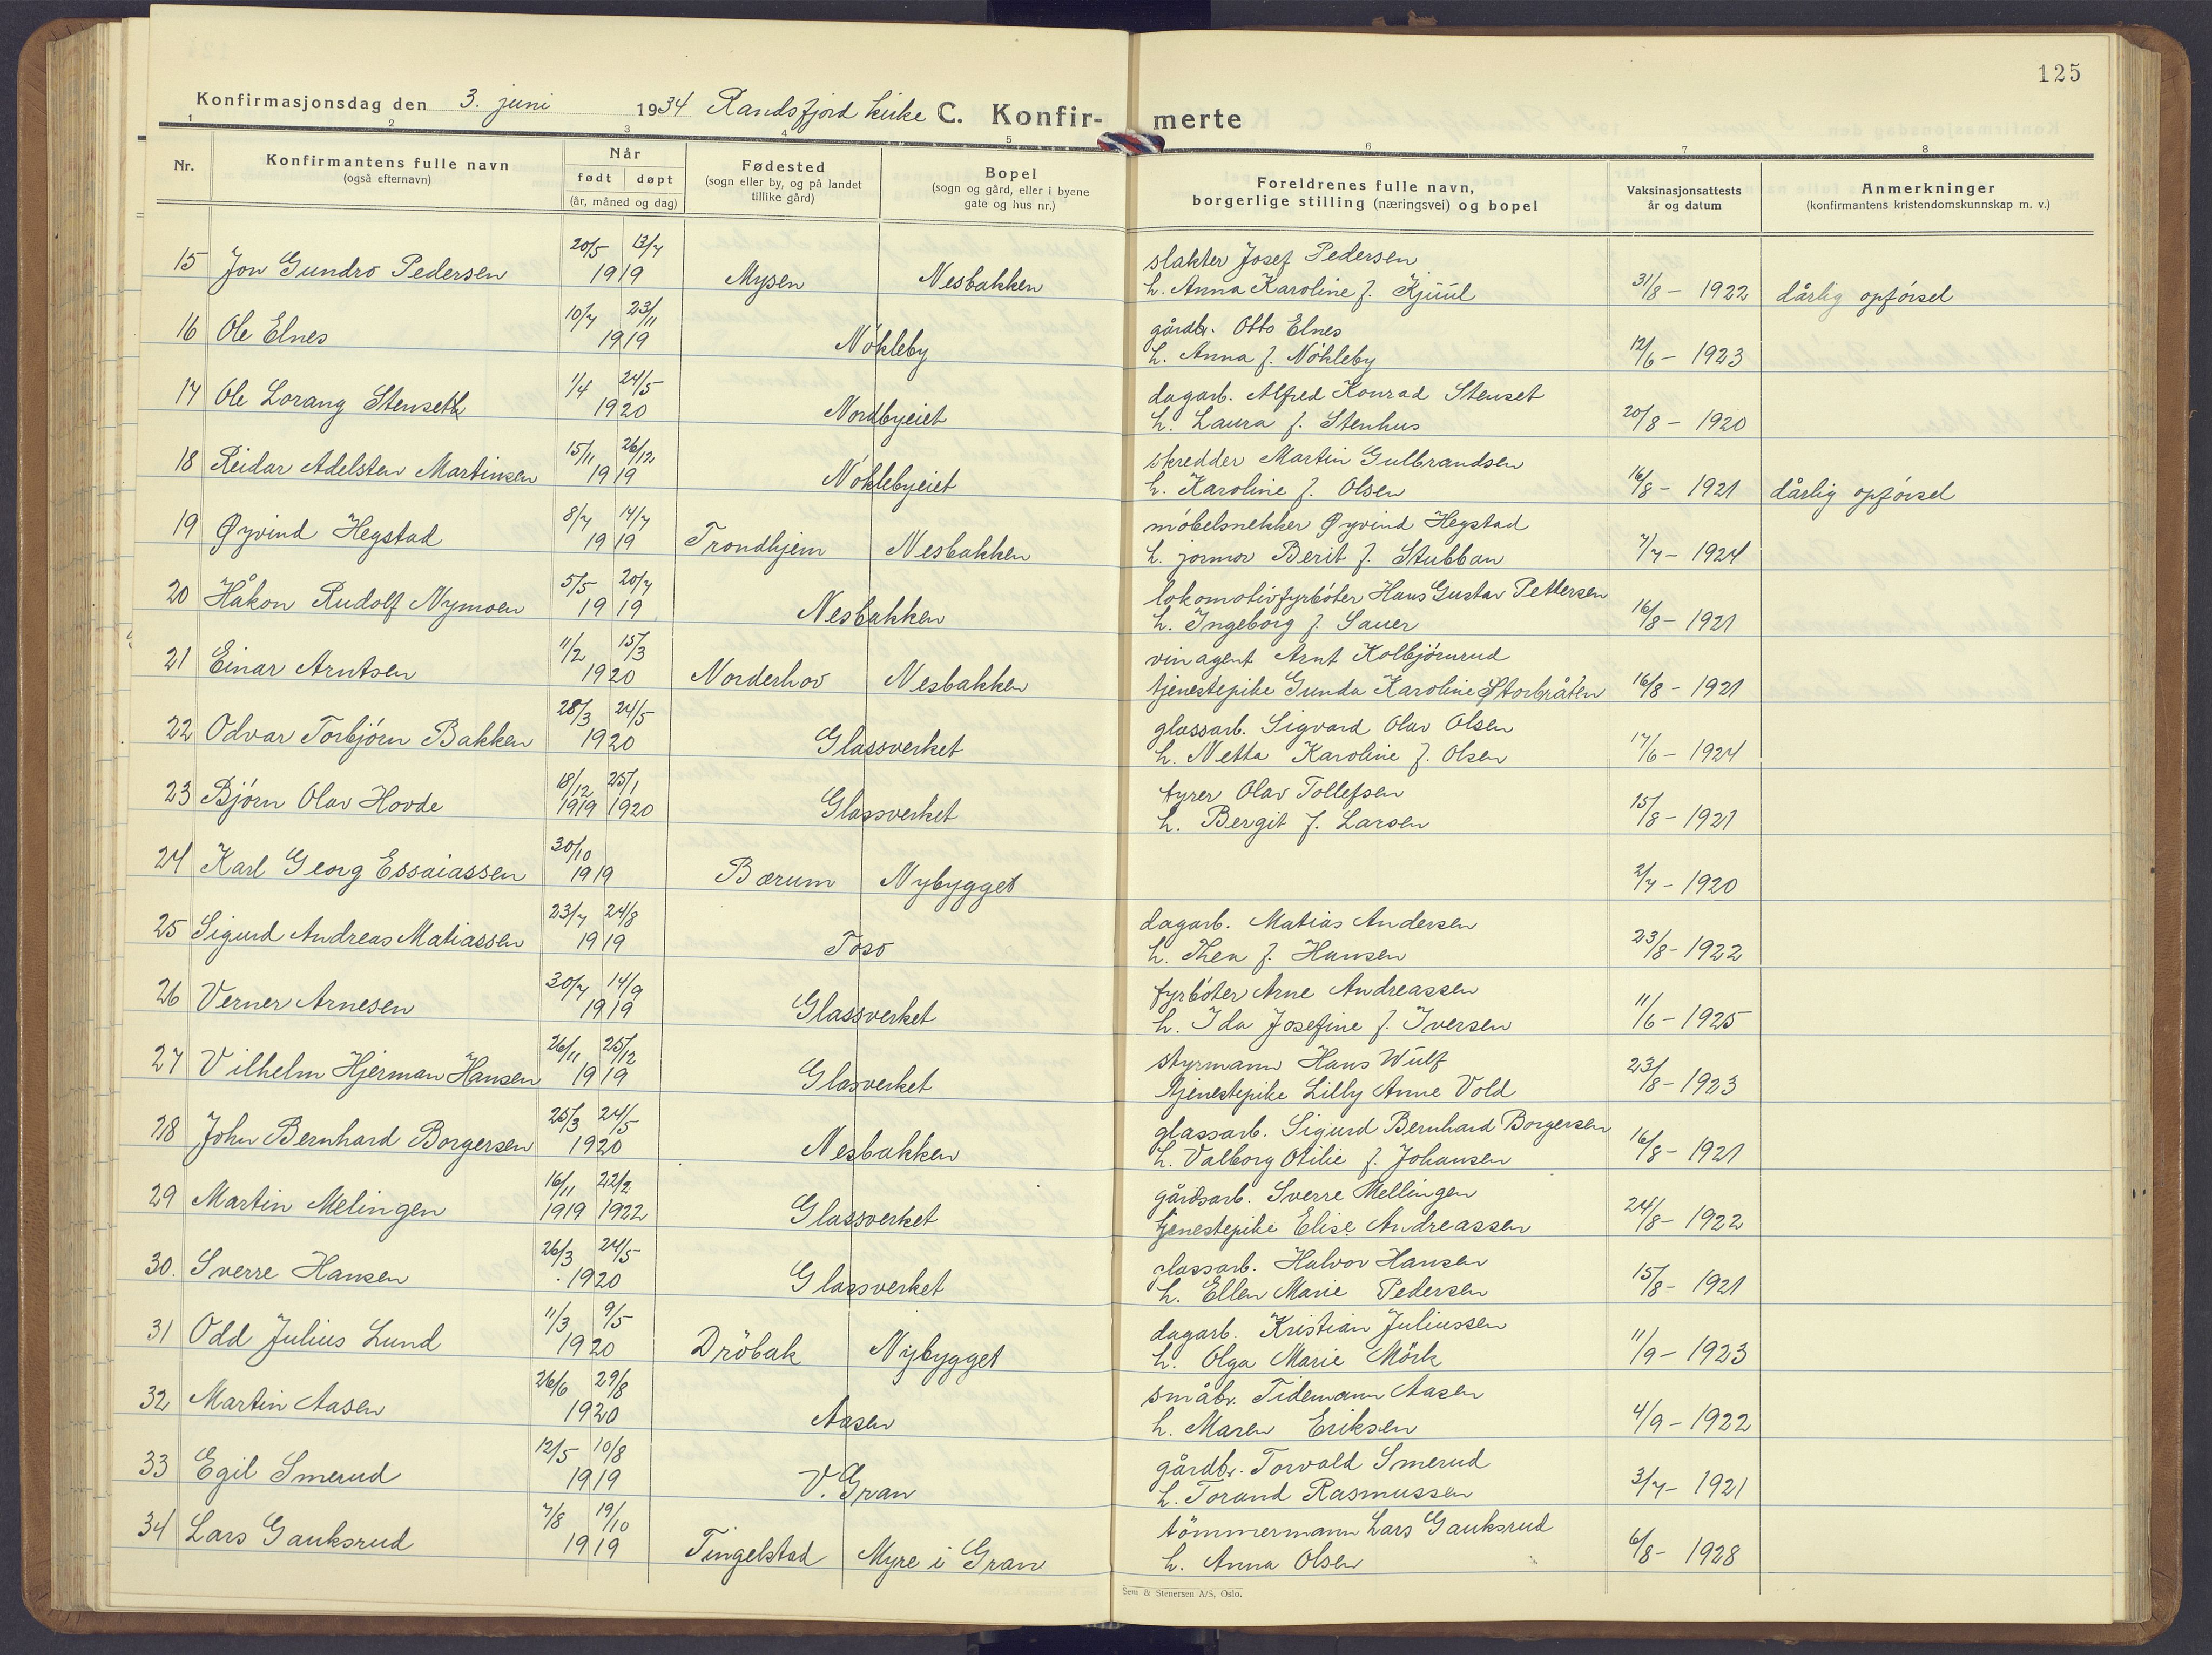 125
Konfirmasjonsdag den 3. juni 1934 Randsfjord kirke C. Konfir- merte
1 2 3 4 5 6 7 8
Nr. Konfirmantens fulle navn (også efternavn) Når født døpt (år, måned og dag) Fødested (sogn eller by, og på landet tillike gård) Bopel (sogn og gård, eller i byene gate og hus nr.) Foreldrenes fulle navn, borgerlige stilling (næringsvei) og bopel Vaksinasjonsattests år og datum Anmerkninger (konfirmantens kristendomskunnskap m. v.)
15 Jon Gundro Pedersen 20/5 13/7 1919 Mysen Nesbakken slakter Josef Pedersen
h. Anna Karoline f. Kjuul 31/8 - 1922 dårlig opførsel
16 Ole Elnes 10/7 23/11 1919 Nökleby gårdbr. Otto Elnes
h. Anna f. Nökleby 12/6 - 1923
17 Ole Lorang Stenseth 1/4 24/5 1920 Nordbyeiet dagarb. Alfred Konrad Stenset
h. Laura f. Stenhus 20/8 - 1920
18 Reidar Adelsten Martinsen 15/11 26/12 1919 Nöklebyeiet skredder Martin Gulbrandsen
h. Karoline f. Olsen 16/8 - 1921 dårlig opförsel
19 Øyvind Hegstad 8/7 14/7 1919 Trondhjem Nesbakken möbelsnekker Øyvind Hegstad
h. jormor Berit f. Stubban 7/7 - 1924
20 Håkon Rudolf Nymoen 5/5 20/7 1919 Nesbakken lokomotivfyrböter Hans Gustav Pettersen
h. Ingeborg f. Sauer 16/8 - 1921
21 Einar Arntsen 11/2 15/3 1920 Norderhov Nesbakken vinagent Arnt Kolbjörnrud
tjenestepike Gunda Karoline Storbråten 16/8 - 1921
22 Odvar Torbjörn Bakken 28/3 24/5 1920 Glassverket glassarb. Sigvard Olav Olsen
h. Netta Karoline f. Olsen 17/6 - 1924
23 Björn Olav Hovde 18/12 25/1 1919 1920 Glassverket fyrer Olav Tollefsen
h. Bergit f. Larsen 15/8 - 1921
24 Karl Georg Essaiassen 30/10 1919 Bærum Nybygget 2/7 - 1920
25 Sigurd Andreas Matiassen 23/7 24/8 1919 Toso dagarb. Matias Andersen
h. Thea f. Hansen 23/8 - 1922
26 Verner Arnesen 30/7 14/9 1919 Glassverket fyrböter Arne Andreassen
h. Ida Josefine f. Iversen 11/6 - 1925
27 Vilhelm Hjerman Hansen 26/11 25/12 1919 Glasverket styrmann Hans Wulf
tjenestepike Lilly Anne Vold 23/8 - 1923
28 John Bernhard Borgersen 25/3 24/5 1920 Nesbakken glassarb. Sigurd Bernhard Borgersen
h. Valborg Otilie f. Johansen 16/8 - 1921
29 Martin Melingen 16/11 22/2 1919 1922 Glassverket gårdsarb. Sverre Mellingen
tjenestepike Elise Andreassen 24/8 - 1922
30. Sverre Hansen 26/3 24/5 1920 Glassverket glassarb. Halvor Hansen
h. Ellen Marie Pedersen 15/8 - 1921
31 Odd Julius Lund 11/3 9/5 1920 Dröbak Nybygget dagarb. Kristian Juliussen
h. Olga Marie Mörk 11/9 - 1923
32 Martin Aasen 26/6 29/8 1920 Aasen småbr. Tidemann Aasen
h. Maren Eriksen 4/9 - 1922
33 Egil Smerud 12/5 10/8 1919 V. Gran gårdbr. Torvald Smerud
h. Torand Rasmussen 3/7 - 1921
34 Lars Gauksrud 7/8 19/10 1919 Tingelstad Myre i Gran tömmermann Lars Gauksrud
h. Anna Olsen 6/8 - 1928
Sem & Stenersen A/S, Oslo.